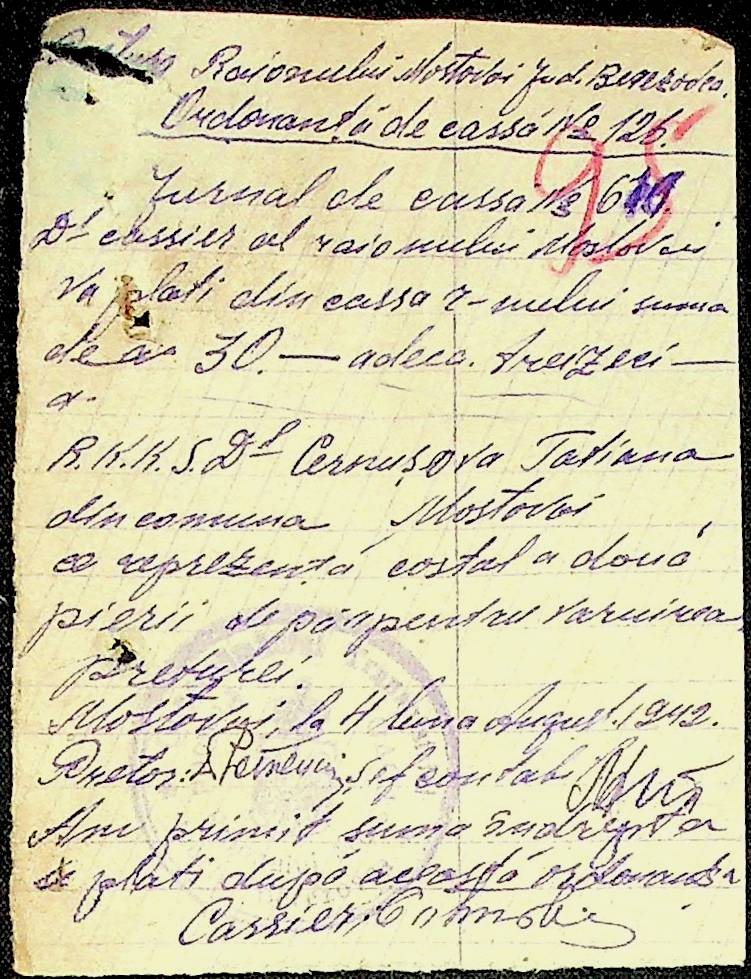 Raionului Mostovoi Jud. Berezovca.
Ordonanță de cassă № 126.
95
Jurnal de cassa № 6
Dl cassier al raionului Mostovoi
va plati din cassa r-nului suma
de 30.— adeca. treizeci —
R.K.K.S. Dl Cernușova Tatiana
din comuna Mostovoi
ce reprezentă costul a două
pierii de păr pentru varuirea
preturei.
Mostovoi, la 4 luna August. 1942.
Pretor: Șef contab.
Am primit suma
plati după această ordonanță
Cassier,